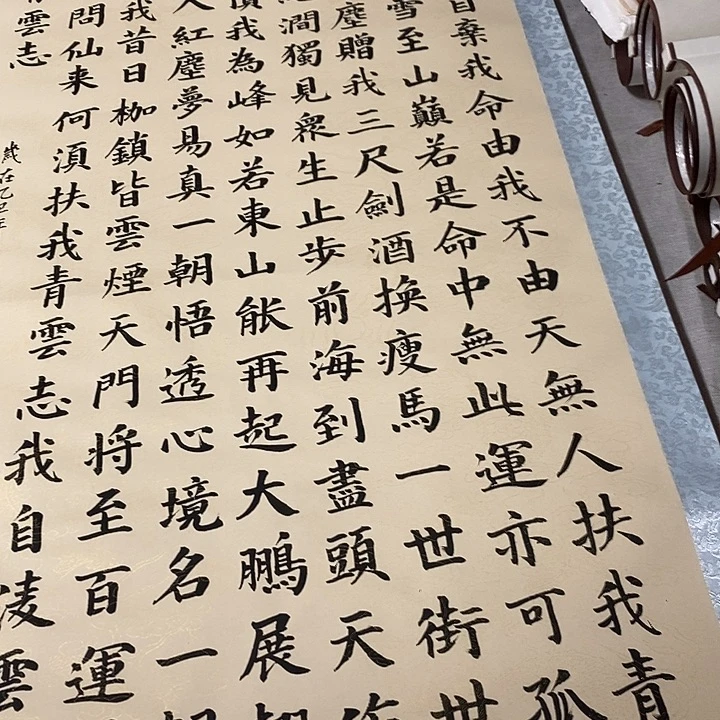 自棄我命由我不由天無人扶我青
雪至山巔若是命中無此運亦可孤
塵贈我三尺劍酒換瘦馬一世街世
澗獨見眾生止步前海到盡頭天作
頂我為峰如若東山能再起大鵬展翅
人紅塵夢易真一朝悟透心境名一朝
我昔日枷鎖皆雲煙天門將至百運
問仙来何湏扶我青雲志我自凌雲
青雲志
歲在乙巳年